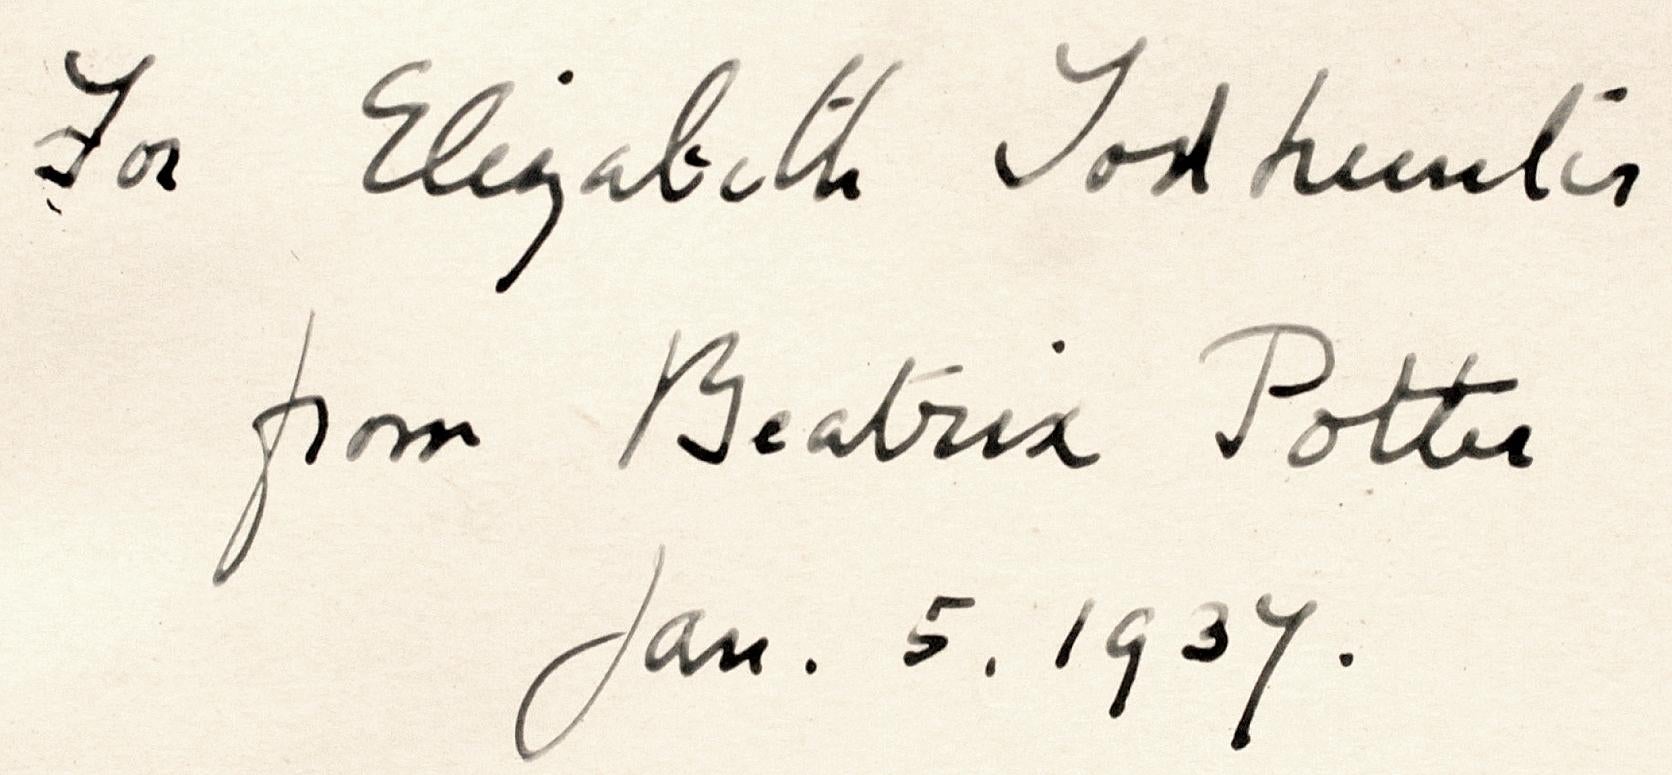 For Elizabeth Todhunter
from Beatrix Potter
Jan. 5. 1937.